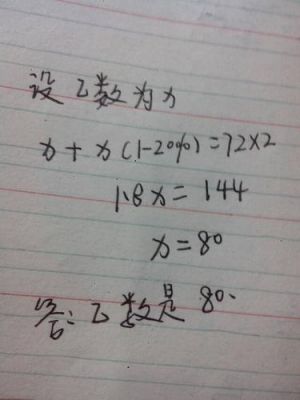 设乙数为x
x+x(1-20%)=72×2
1.8x=144
x=80
答:乙数是80.